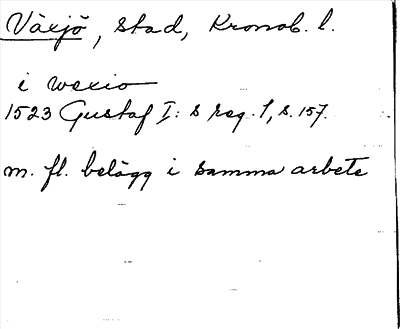 Växjö, stad, Kronob. l.
i wexio
1523 Gustaf I:s reg. 1, s. 157.
m. fl. belägg i samma arbete